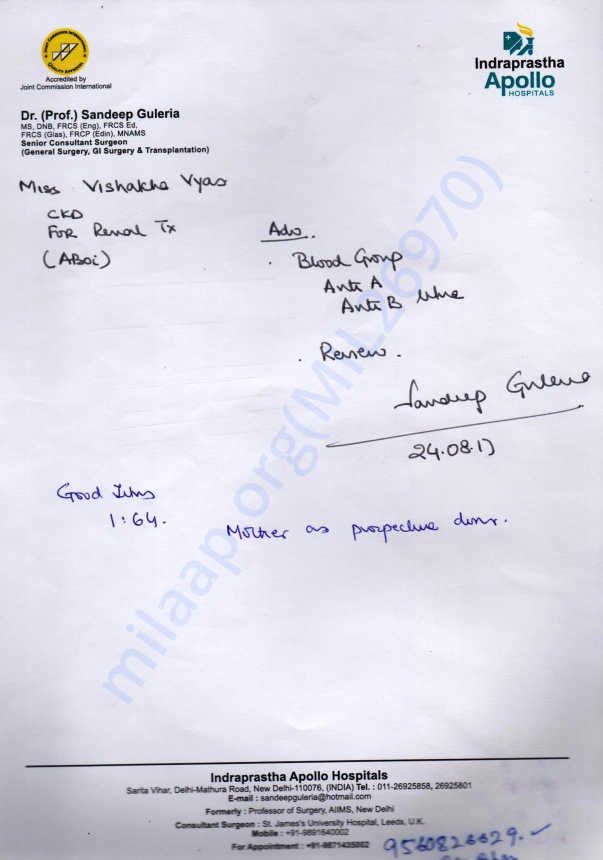 JOINT COMMISSION INTERNATIONAL
QUALITY APPROVAL
Accredited by
Joint Commission International
Indraprastha
Apollo
HOSPITALS
Dr. (Prof.) Sandeep Guleria
MS, DNB, FRCS (Eng), FRCS Ed,
FRCS (Glas), FRCP (Edin), MNAMS
Senior Consultant Surgeon
(General Surgery, GI Surgery & Transplantation)
Miss Vishakha Vyas
CKD
For Renal Tx
(ABOi)
Adv.
. Blood Group
Anti A
Anti B titre
. Review.
Sandeep Guleria
24.08.17
Good titres
1:64.
Mother as prospective donor.
milaap.org(MIL26970)
Indraprastha Apollo Hospitals
Sarita Vihar, Delhi-Mathura Road, New Delhi-110076, (INDIA) Tel. : 011-26925858, 26925801
E-mail : sandeepguleria@hotmail.com
Formerly : Professor of Surgery, AIIMS, New Delhi
Consultant Surgeon : St. James's University Hospital, Leeds, U.K.
Mobile : +91-9891640002
For Appointment : +91-9871435002
9560826629.